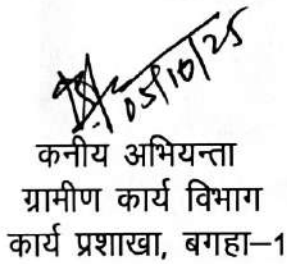 05/10/25
कनीय अभियन्ता
ग्रामीण कार्य विभाग
कार्य प्रशाखा, बगहा–1